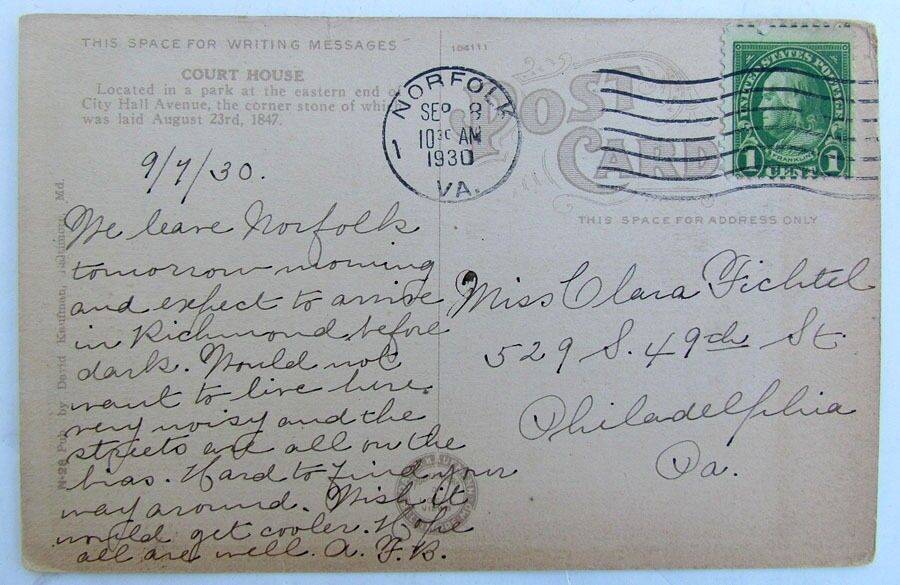 THIS SPACE FOR WRITING MESSAGES
COURT HOUSE
Located in a park at the eastern end of
City Hall Avenue, the corner stone of which
was laid August 23rd, 1847.
9/7/30.
We leave Norfolk
tomorrow morning
and expect to arrive
in Richmond before
dark. Would not
want to live here
very noisy and the
streets are all on the
bias. Hard to find your
way around. Wish it
would get cooler. Hope
all are well. A. F. B.
Pub. by David Kaufman, Baltimore, Md.
104111
POST
CARD
NORFOLK
SEP 8
1030 AM
1930
VA.
1
UNITED STATES POSTAGE
FRANKLIN
1 CENT 1
THIS SPACE FOR ADDRESS ONLY
Miss Clara Fichtel
529 S. 49th St.
Philadelphia
Pa.